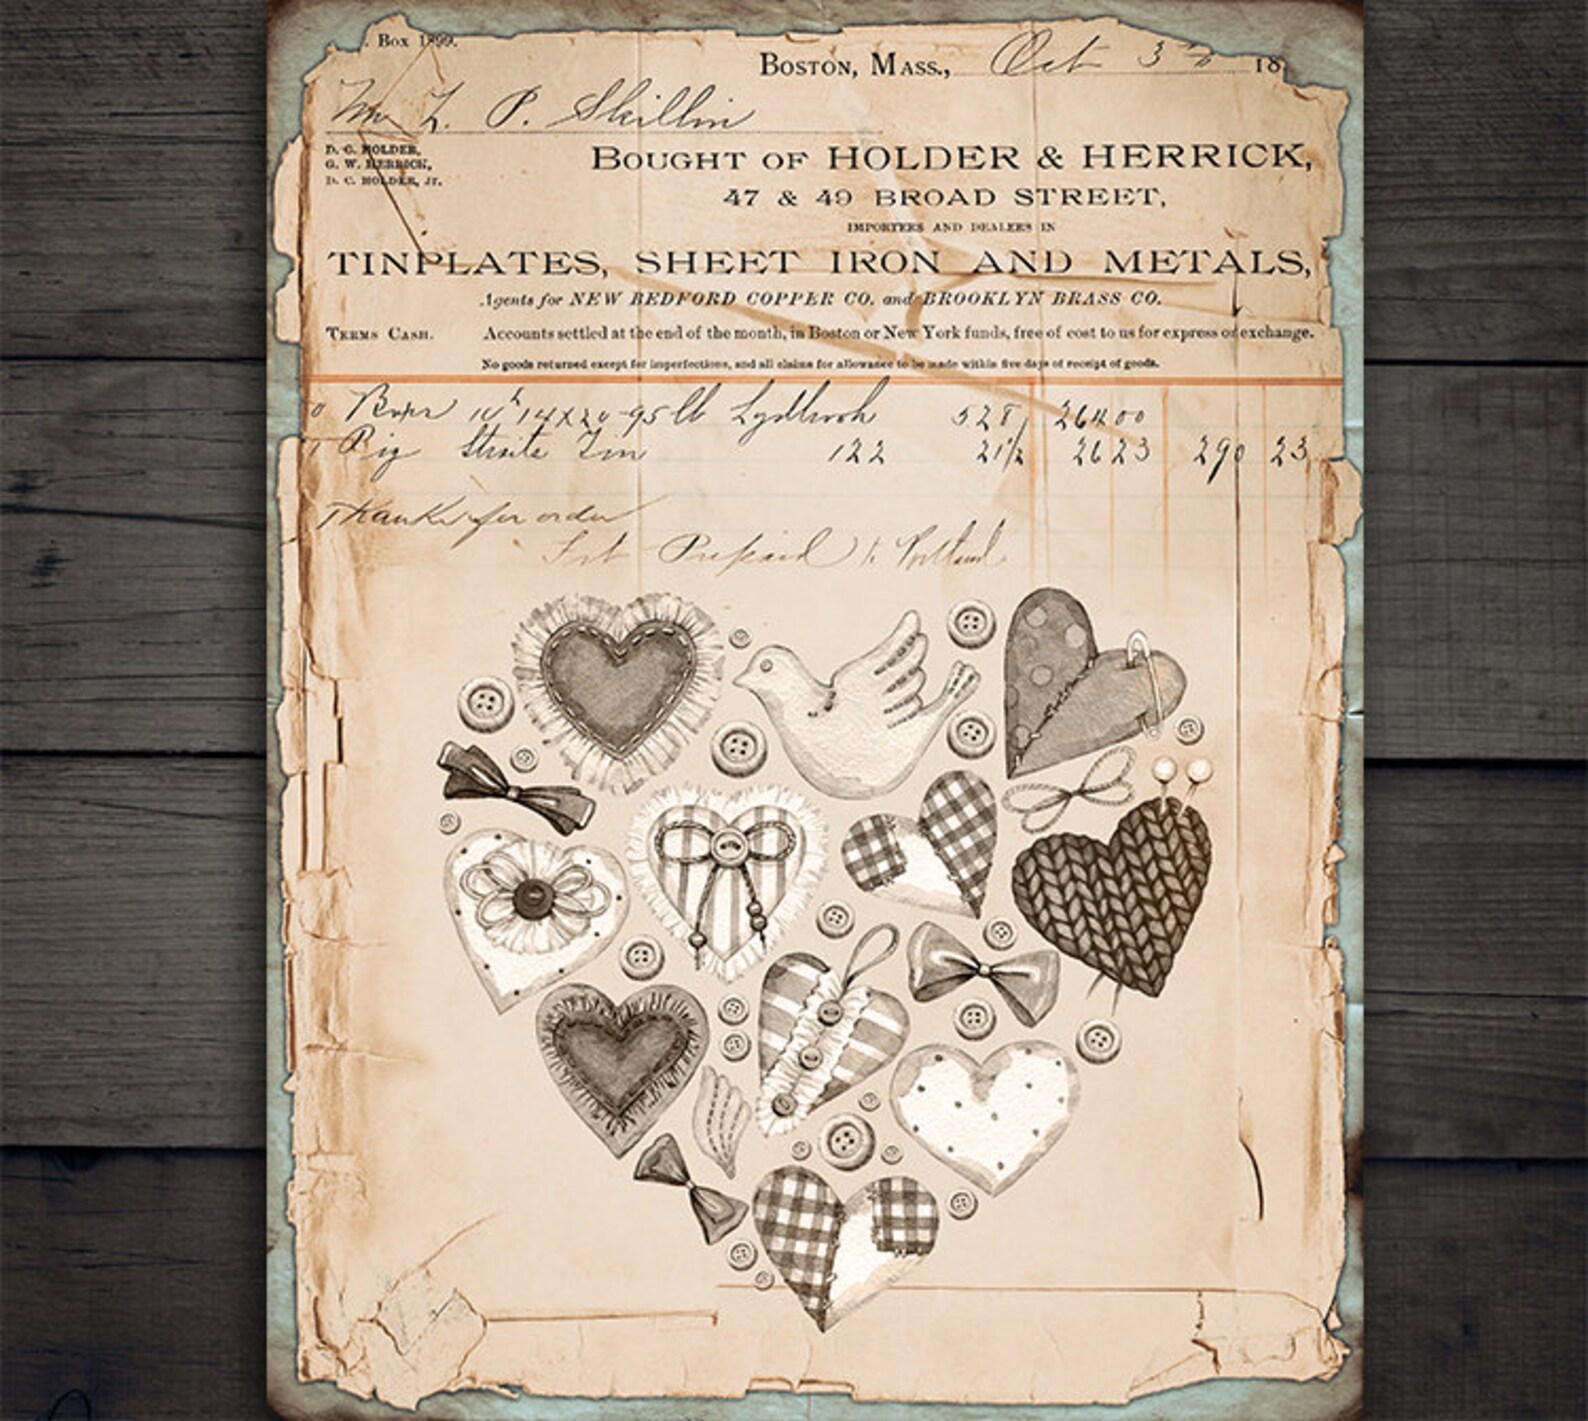 Box 1899.
Boston, Mass., Oct 3rd 18
Mr Z. P. Skillin
D. C. HOLDER,
G. W. HERRICK,
D. C. HOLDER, Jr.
Bought of HOLDER & HERRICK,
47 & 49 BROAD STREET,
IMPORTERS AND DEALERS IN
TINPLATES, SHEET IRON AND METALS,
Agents for NEW BEDFORD COPPER CO. and BROOKLYN BRASS CO.
Terms Cash. Accounts settled at the end of the month, in Boston or New York funds, free of cost to us for express or exchange.
No goods returned except for imperfections, and all claims for allowance to be made within five days of receipt of goods.
0 Boxes 14x20 95 lb Lydbrook 528 264 00
1 Pig Straits Tin 122 21 1/2 26 23 290 23
Thanks for order
Frt Prepaid to Portland